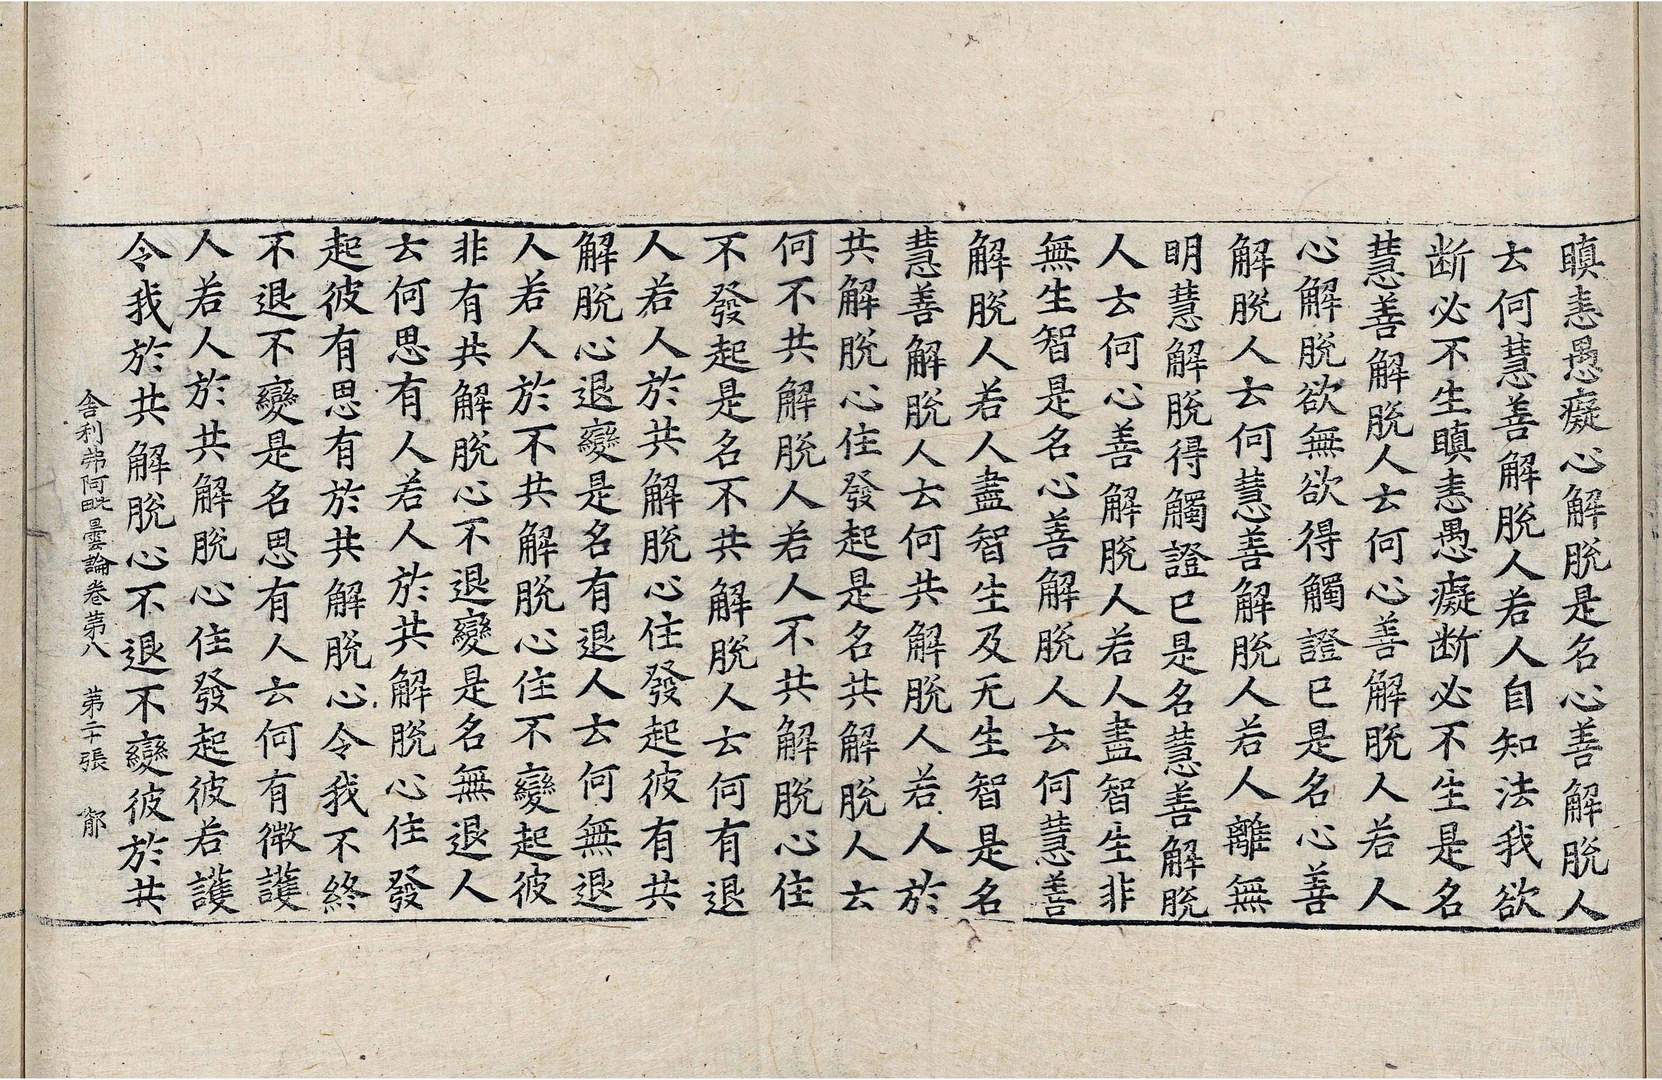 瞋恚愚癡心解脱是名心善解脱人
云何慧善解脱人若人自知法我欲
断必不生瞋恚愚癡断必不生是名
慧善解脱人云何心善解脱人若人
心解脱欲無欲得觸證已是名心善
解脱人云何慧善解脱人若人離無
明慧解脱得觸證已是名慧善解脱
人云何心善解脱人若人盡智生非
無生智是名心善解脱人云何慧善
解脱人若人盡智生及无生智是名
慧善解脱人云何共解脱人若人於
共解脱心住發起是名共解脱人云
何不共解脱人若人不共解脱心住
不發起是名不共解脱人云何有退
人若人於共解脱心住發起彼有共
解脱心退變是名有退人云何無退
人若人於不共解脱心住不變起彼
非有共解脱心不退變是名無退人
云何思有人若人於共解脱心住發
起彼有思有於共解脱心令我不終
不退不變是名思有人云何有微護
人若人於共解脱心住發起彼若護
令我於共解脱心不退不變彼於共
舍利弗阿毗曇論卷第八 第二十張 鄃